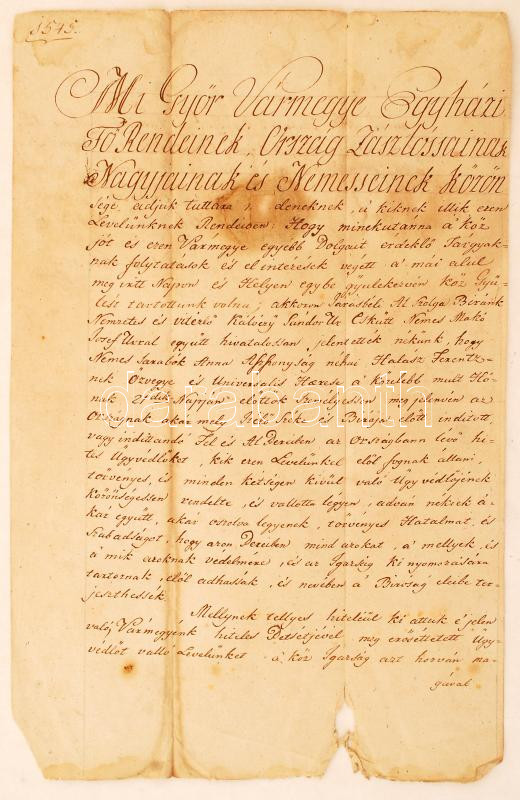 1545.
Mi Győr Vármegye Egyházi
Fő Rendeinek, Ország Zászlóssainak
Nagyjainak és Nemesseinek közön
sége, adjuk tuttára deneknek, a' kiknek illik ezen
Levelünknek Rendiben: Hogy minekutánna a' köz
jót és ezen Vármegye egyébb Dolgait érdeklő Tárgyak-
nak folytatások és el intézések végett a' mái alul
meg írtt Napon és Helyen egybe gyülekezvén köz Gyü-
lést tartottunk volna; akkoron Járásbéli Al Szolga Biránk
Nemzetes és vitézlő Kálóczy Sándor Ur Eskütt Nemes Makó
Josef Urral együtt hivatalossan jelentették nékünk, hogy
Nemes Sarabók Anna Asszonyság néhai Halasz Ferentz-
nek Özvegye és Universalis Hæres a' közelebb mult Hó-
nak 21dik Napján előttök személyessen meg jelenvén az
Országnak akármely Itélő Széke és Birája előtt indított
vagy indíttandó Fel és Al Pereiben az Országbann lévő hi-
tes Ügyvédlőket, kik ezen Levelünkel elől fognak állani,
törvényes, és minden kétségen kivül való Ügyvédlőjének
közönségessen rendelte, és vallotta légyen, adván nékiek a-
kár együtt, akár osztolva légyenek, törvényes Hatalmat, és
Szabadságot, hogy azon Pereiben mind azokat, a' mellyek, és
a' mik azoknak védelmére, és az Igazság ki nyomozására
tartoznak, elől adhassák, és nevében a' Biróság eleibe ter-
jeszthessék
Mellynek tellyes hiteléül ki attuk é jelen
való, Vármegyénk hiteles Petsétjével meg erősettetett Ügy-
védlőt valló Levelünket. a' köz Igazság azt hozván ma-
gával
darabanth